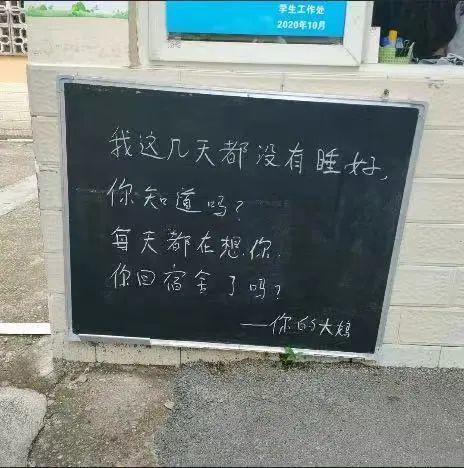 学生工作处
2020年10月
我这几天都没有睡好,
你知道吗?
每天都在想你.
你回宿舍了吗?
——你的大姨